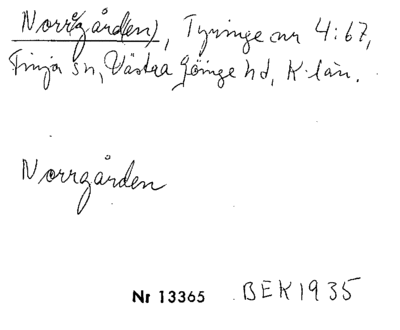 Norrgård(en), Tyringe nr 4:67,
Finja sn, Västra Göinge hd, K. län.
Norrgården
Nr 13365 BEK 1935